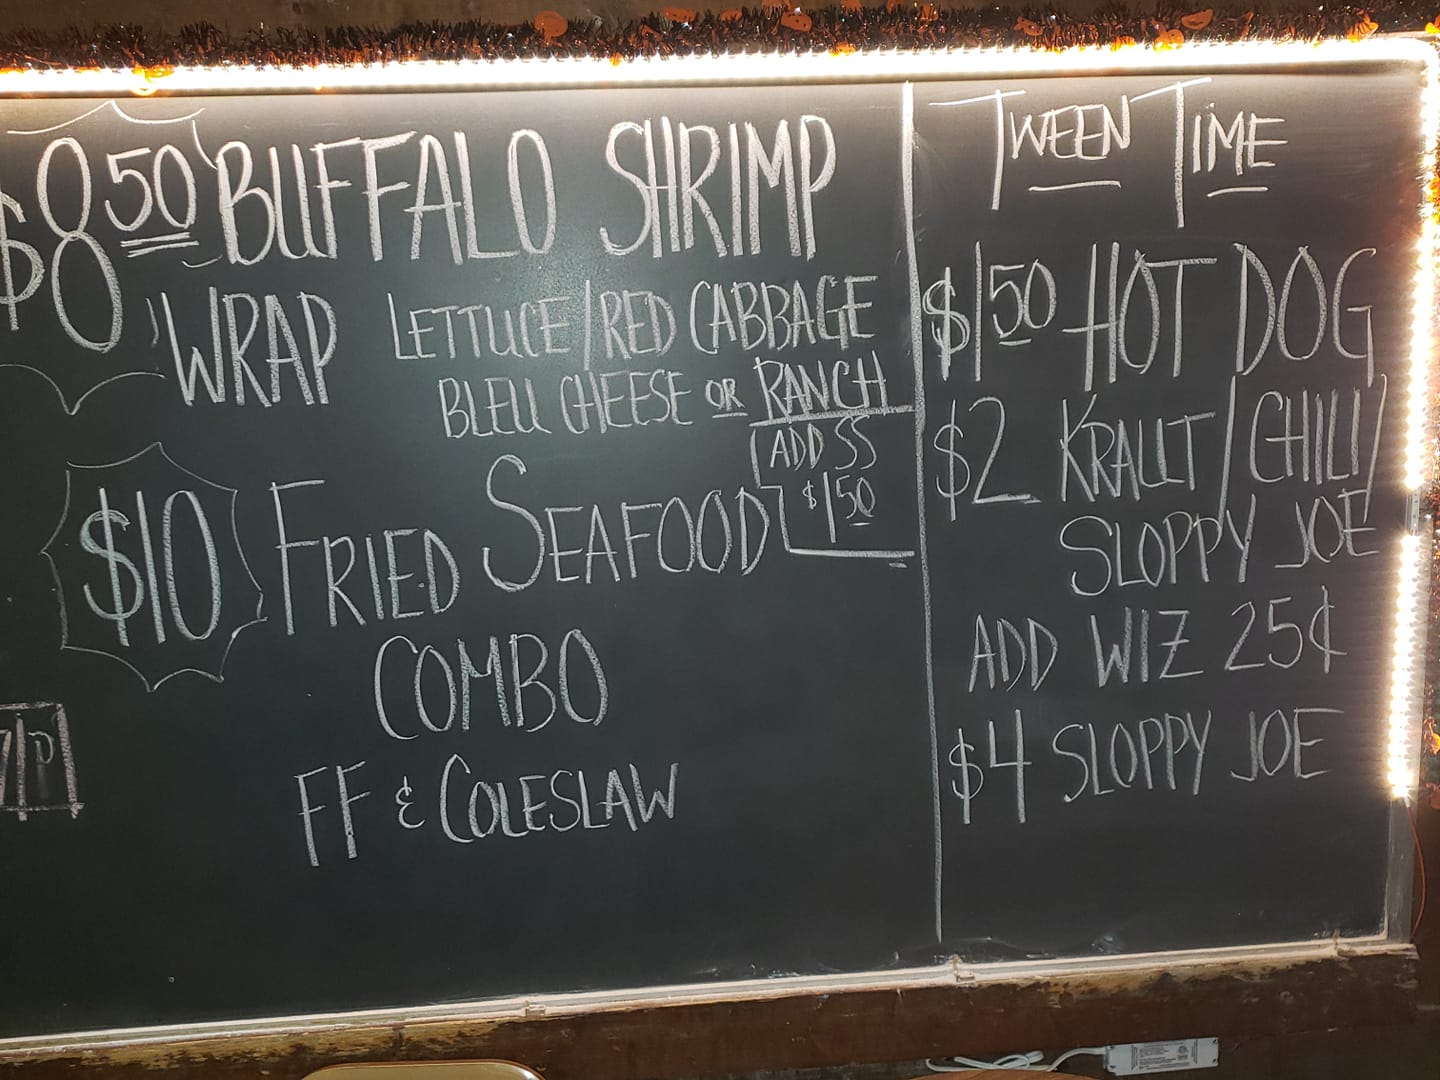 $8.50 BUFFALO SHRIMP
WRAP LETTUCE/RED CABBAGE
BLEU CHEESE OR RANCH
ADD SS
$1.50
$10 FRIED SEAFOOD
COMBO
FF & COLESLAW
TWEEN TIME
$1.50 HOT DOG
$2 KRAUT/CHILI/
SLOPPY JOE
ADD WIZ 25¢
$4 SLOPPY JOE